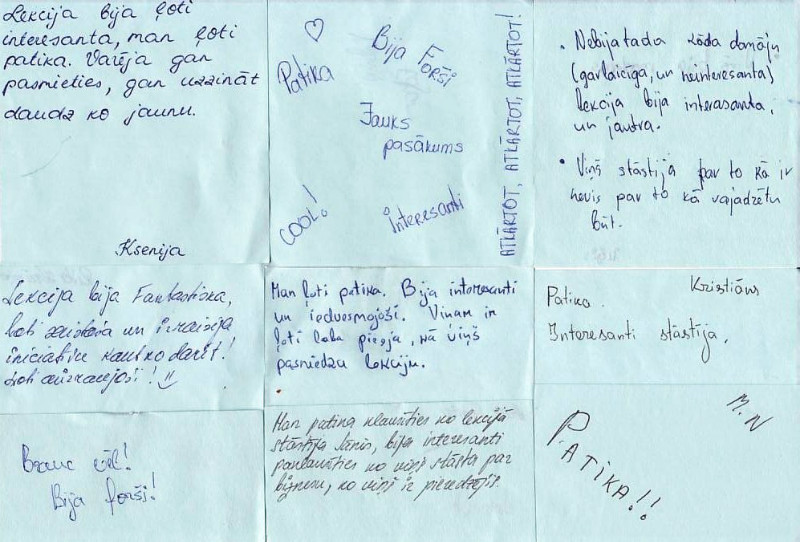 Lekcija bija ļoti
interesanta, man ļoti
patika. Varēja gan
pasmieties, gan uzzināt
daudz ko jaunu.
Ksenija
Patika
Bija Forši
Jauks
pasākums
COOL!
interesanti
ATKĀRTOT, ATKĀRTOT, ATKĀRTOT!
• Nebija tada kāda domāju
(garlaicīga, un neinteresanta)
Lekcija bija interasanta,
un jautra.
• Viņš stāstīja par to kā ir
nevis par to kā vajadzētu
būt.
Lekcija bija Fantastiska,
ļoti saistoša un izraisīja
iniciatīvu kaut ko darīt!
Ļoti aizraujoši!
Man ļoti patika. Bija interesanti
un iedvesmojoši. Viņam ir
ļoti laba pieeja, kā viņš
pasniedza lekciju.
Kristiāns
Patika.
Interesanti stāstīja.
Brauc vēl!
Bija forši!
Man patika klausīties ko lekcijā
stāstīja Jānis, bija interesanti
paklausīties ko viņš stāsta par
biznesu, ko viņš ir pieredzējis.
M.N
PATIKA!!